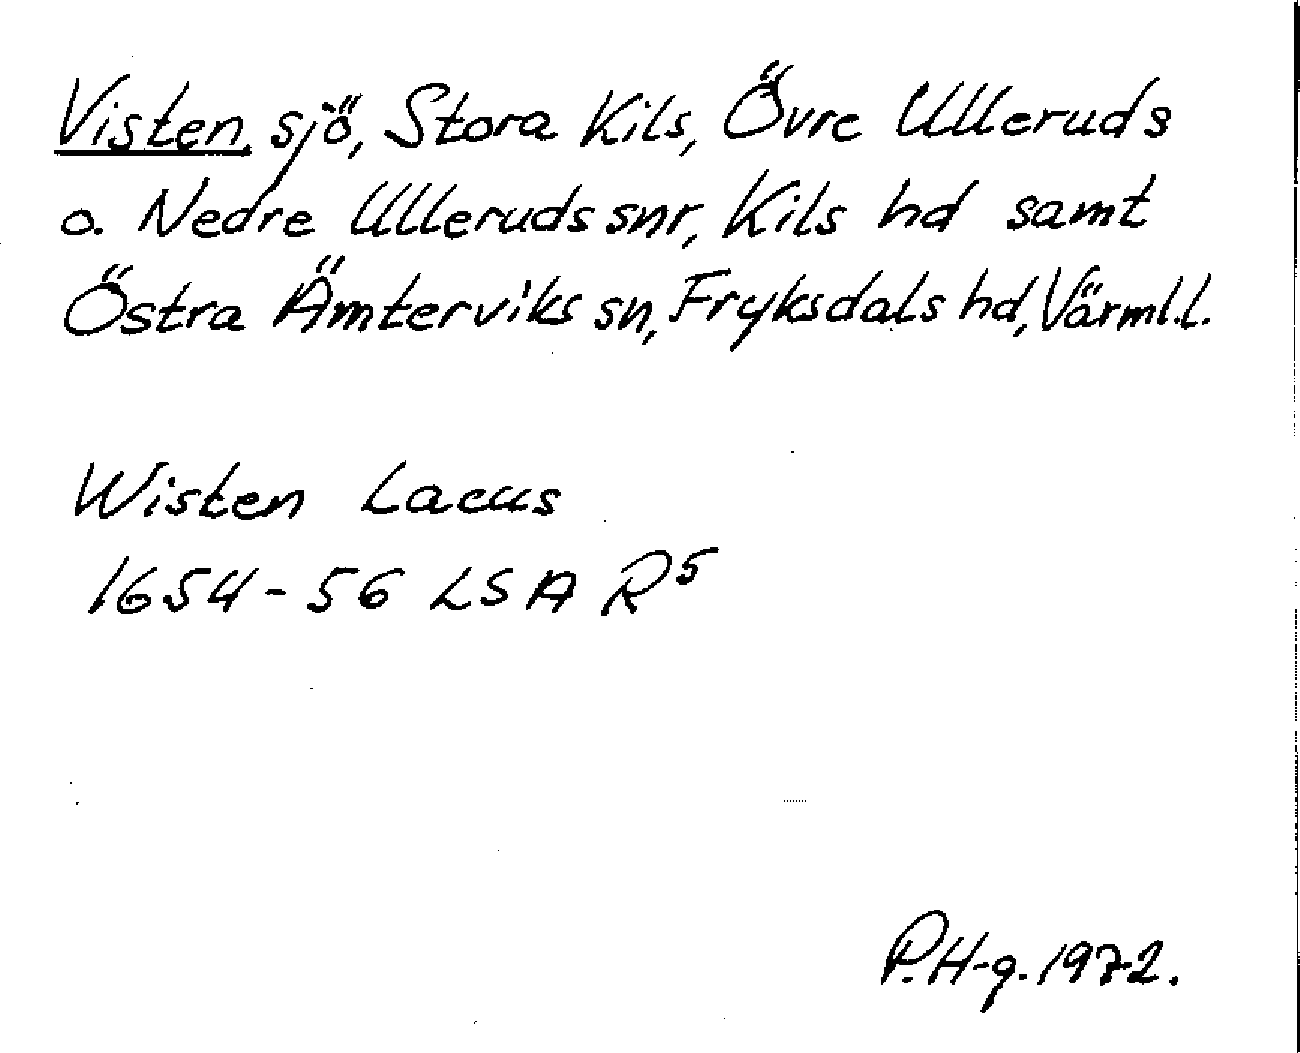 Visten, sjö, Stora Kils, Övre Ulleruds
o. Nedre Ulleruds snr, Kils hd samt
Östra Ämterviks sn, Fryksdals hd, Värml.l.
Wisten Lacus
1654-56 LSA R5
P.H-g. 1972.